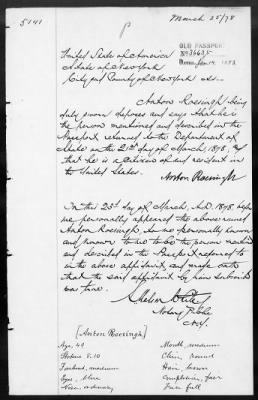 5141
March 25/78
OLD PASSPORT
United States of America
State of New York
City and County of New York ss.
Anton Roesingh being
duly sworn deposes and says that he is
the person mentioned and described in the
Passport returned to the Department of
State on the 21st day of March, 1878, &
that he is a citizen of and resident in
the United States.
Anton Roesingh
On this 25th day of March, A.D. 1878, before
me personally appeared the above named
Anton Roesingh, to me personally known
and known to me to be the person mentioned
and described in the Passport referred to
in the above affidavit, and made oath
that the said affidavit by him subscribed
was true.
Notary Public
N.Y.
[Anton Roesingh]
Age, 49
Stature 5.10
Forehead, medium
Eyes, blue
Nose, ordinary
Mouth, medium
Chin, round
Hair, brown
Complexion, fair
Face full